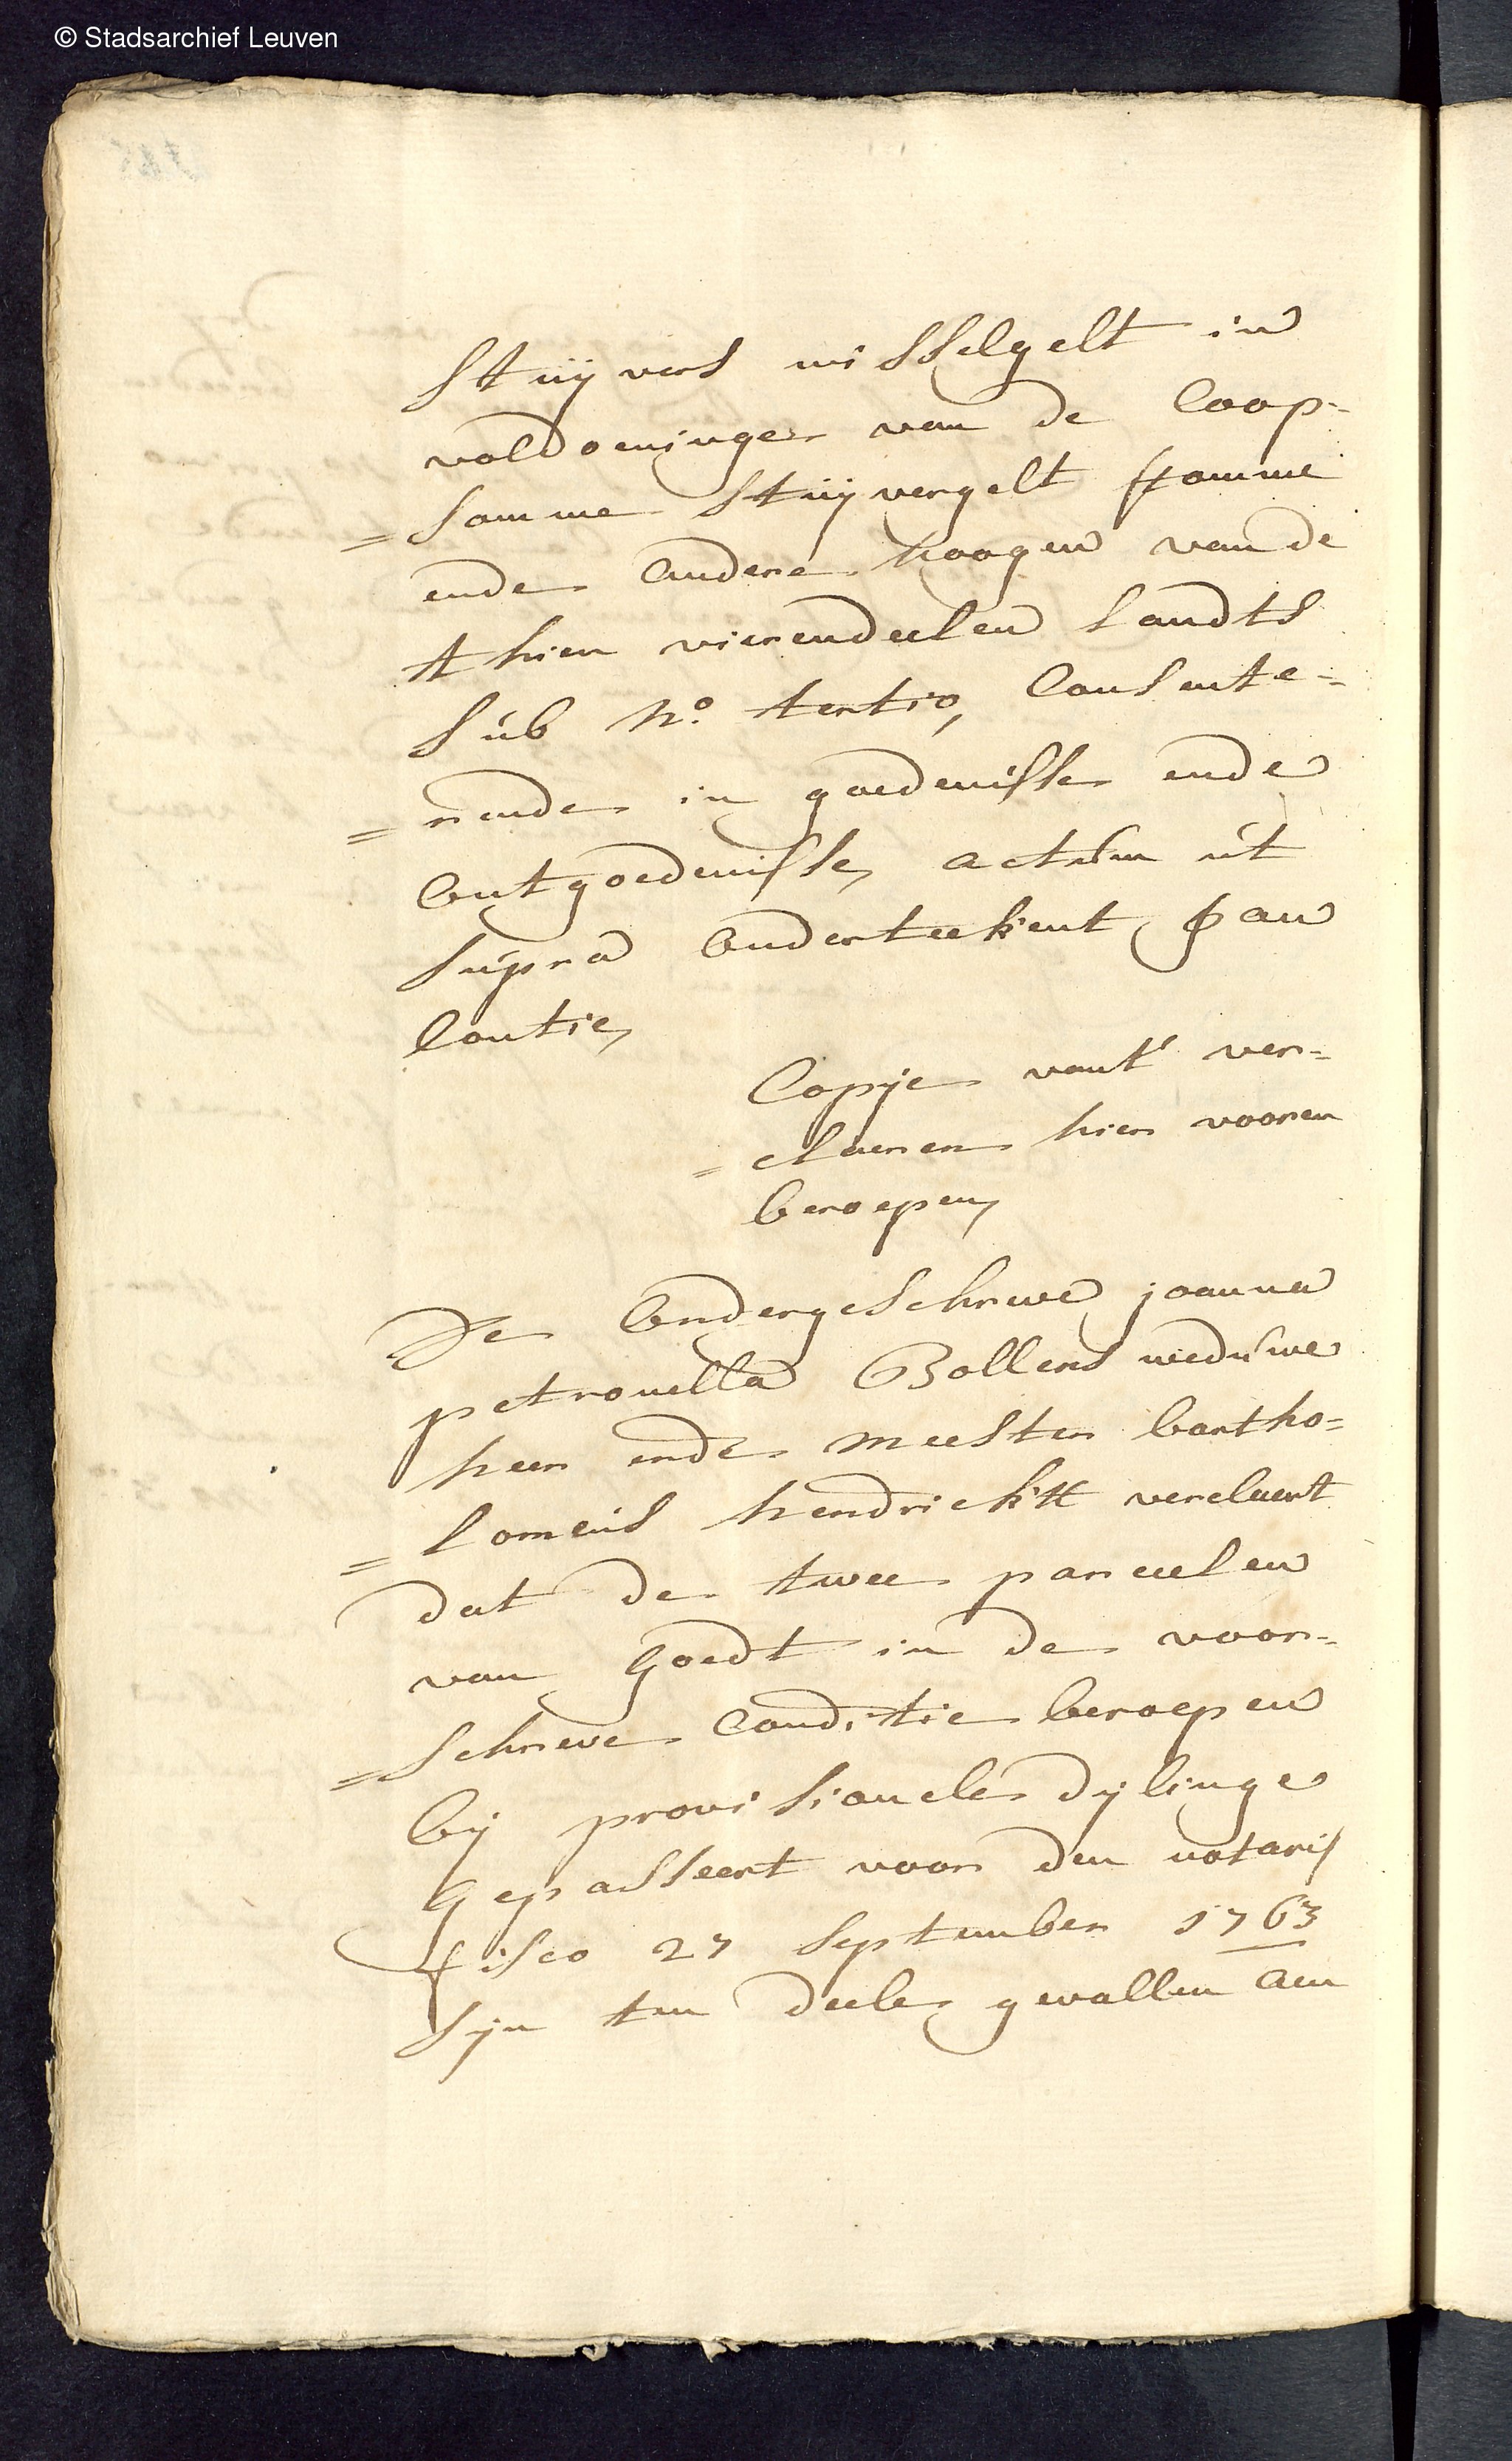 © Stadsarchief Leuven
Stuijvers wisselgelt in
voldoeninge van de Coop-
=somme Stuijvergelt
ende andere hoogen van de
thien vierendeelen Landts
Sub N.o tertio, Consente-
=rende in goedenisse ende
ontgoedenisse, actum ut
supra onderteekent
Copije vant ver-
=claeren hier vooren
beroepen,
De ondergeschreve joanna
petronella Bollens weduwe
heer ende meester bartho=
=lomeus hendrickx verclaert
dat de twee parceelen
van goedt in de voor-
=schreve Conditie beroepen
bij provisioneele dylinge
gepasseert voor den notaris
fisco 27 September 1763
sijn ten deele gevallen aen